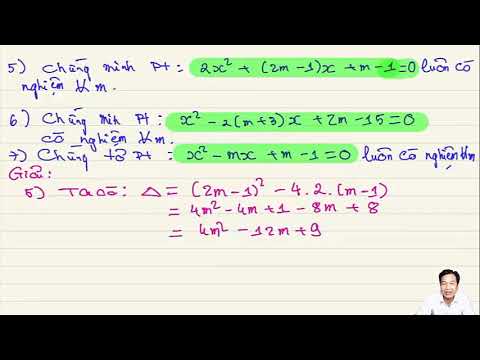 5) Chứng minh Pt: 2x² + (2m - 1)x + m - 1 = 0 luôn có
nghiệm ∀m.
6) Chứng minh Pt: x² - 2(m+3)x + 2m - 15 = 0
có nghiệm ∀m.
7) Chứng tỏ Pt: x² - mx + m - 1 = 0 luôn có nghiệm ∀m
Giải:
5) Ta có: Δ = (2m - 1)² - 4.2.(m - 1)
= 4m² - 4m + 1 - 8m + 8
= 4m² - 12m + 9